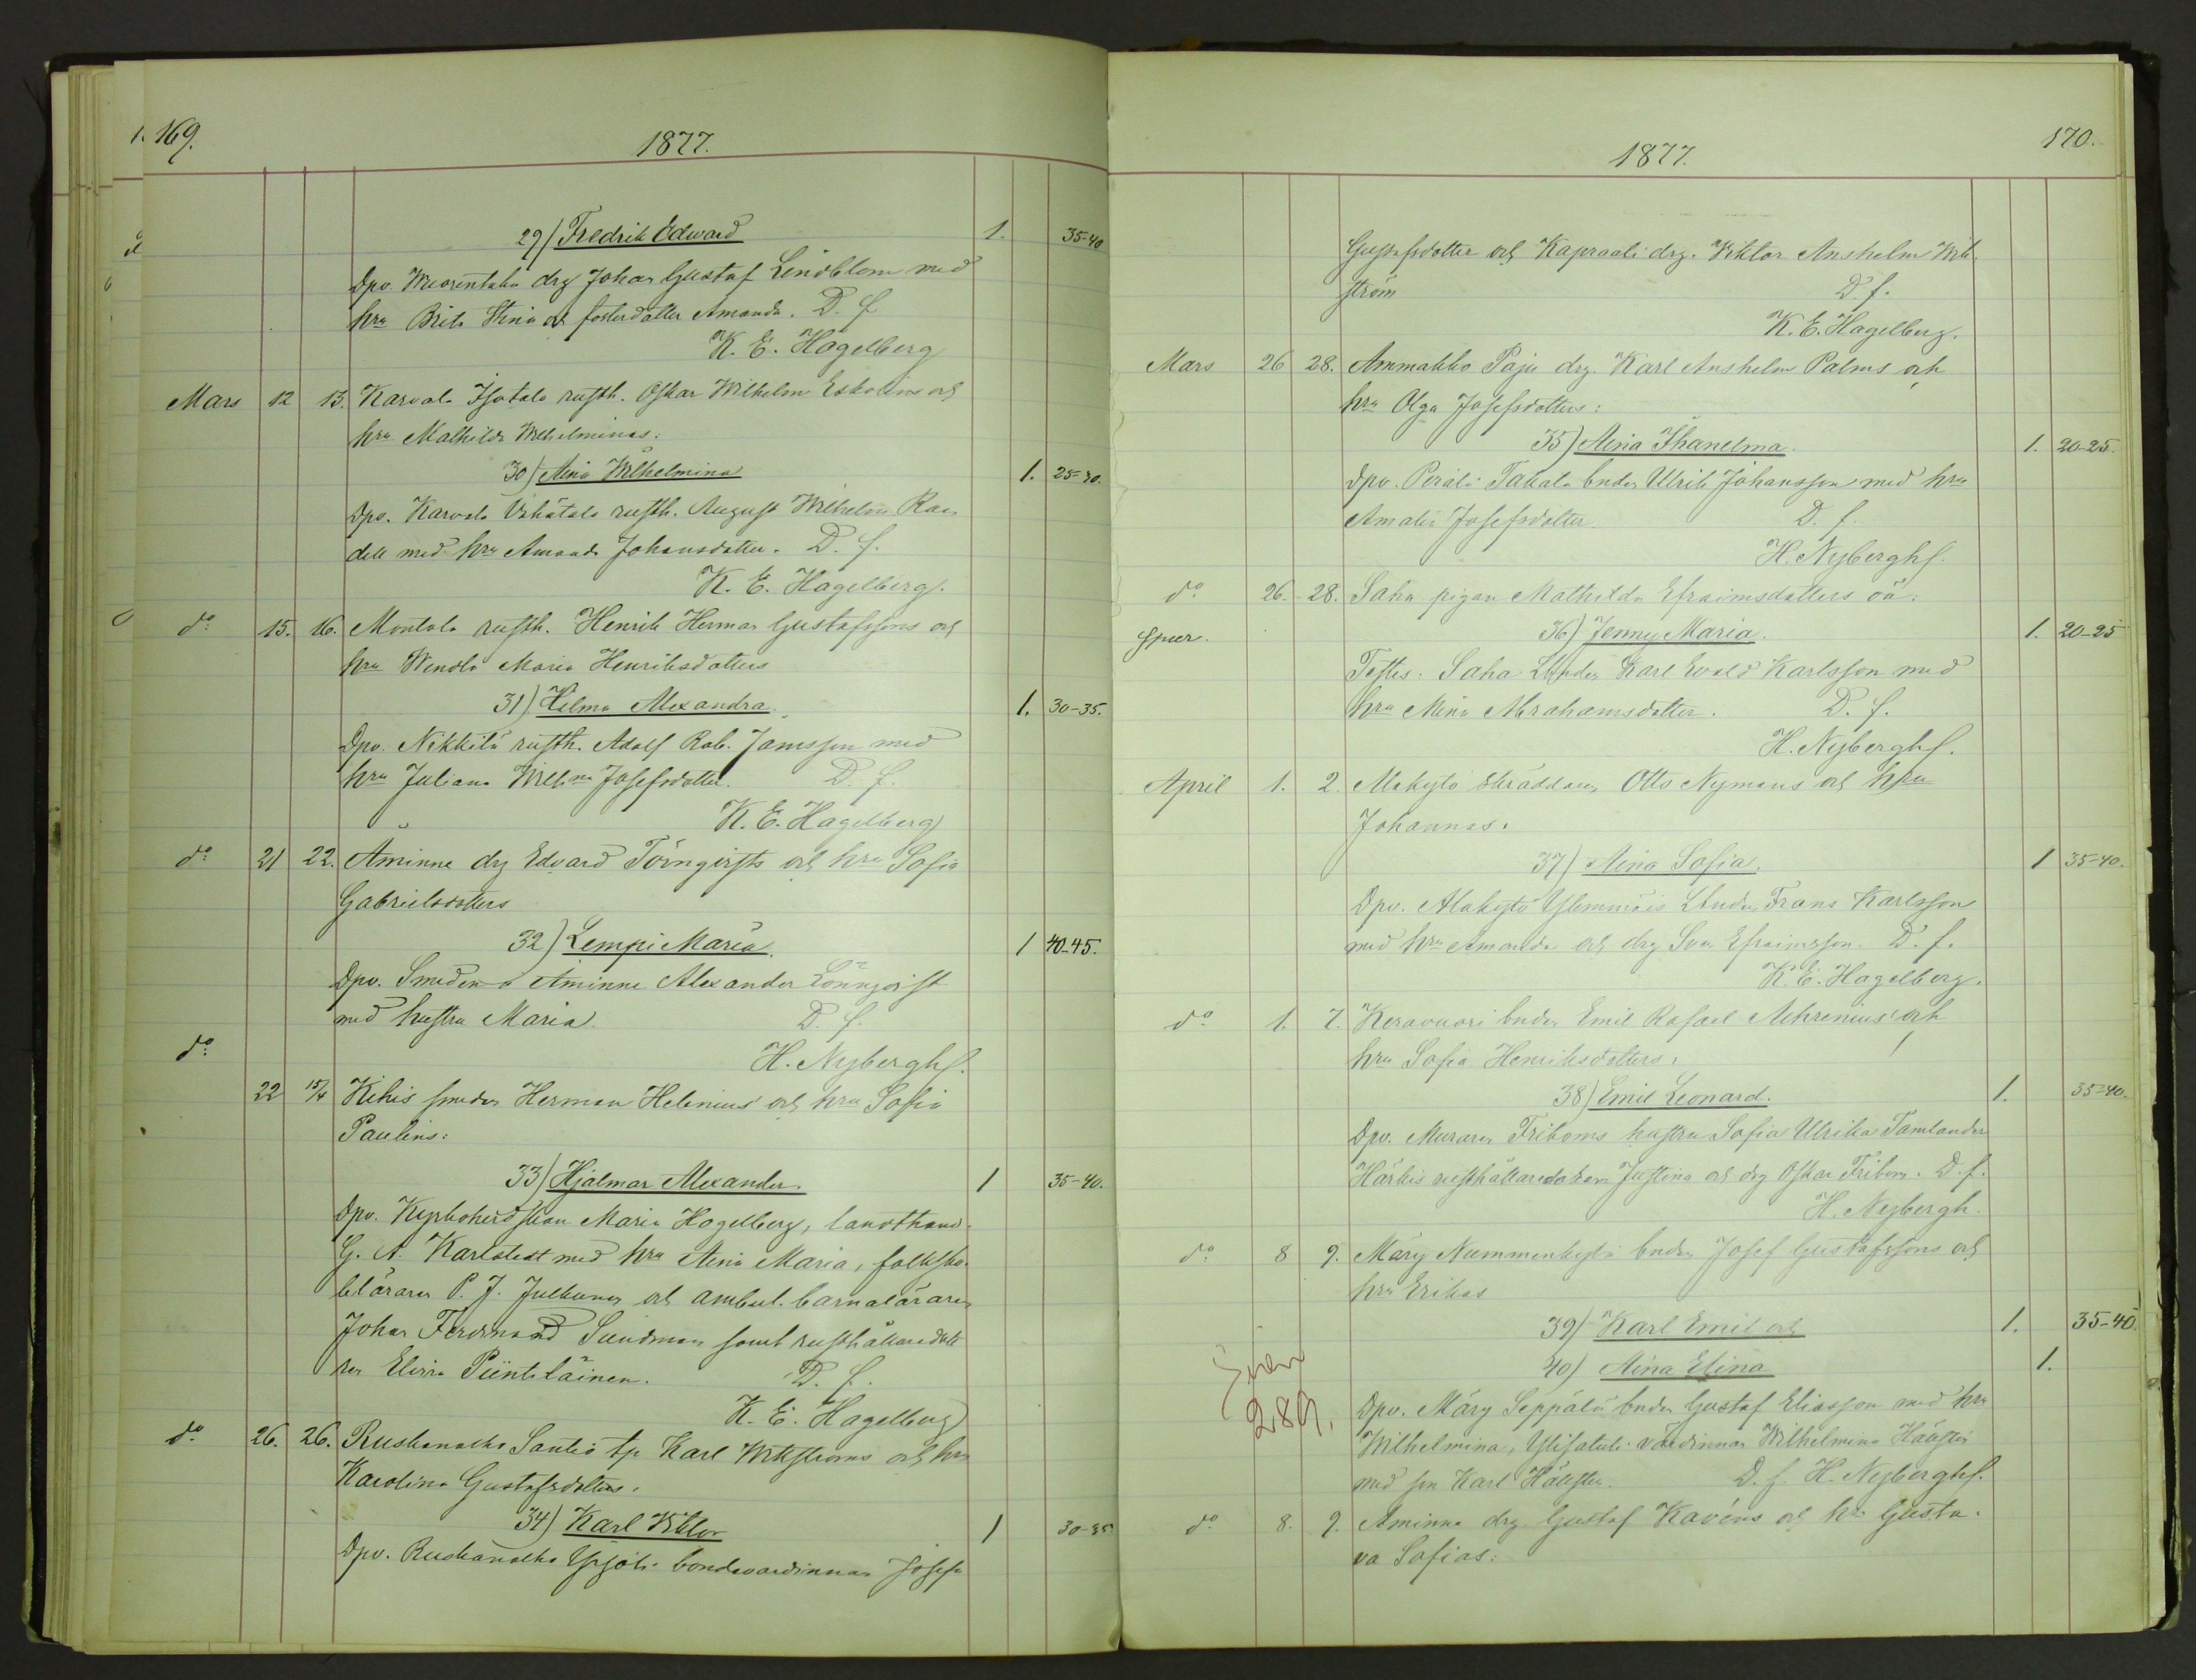 169.
1877.
29) Fredrik Edward 1. 35-40
Dpv. drg Johan Gustaf Lindblom med
hru Brita Stina och fosterdotter Amanda. D. f.
K. E. Hagelberg
Mars 12 13. Karvala Isotalo rusth. Oskar Wilhelm Eskolins och
hru Mathilda Wilhelminas:
30) Aina Wilhelmina 1. 25-30.
Dpv. Karvala Vähätalo rusth. August Wilhelm Ran
dell med hru Amanda Johansdotter. D. f.
K. E. Hagelberg.
do 15. 16. Montola rusth. Henrik Herman Gustafssons och
hru Wendla Maria Henriksdotters
31) Hilma Alexandra. 1. 30-35.
Dpv. Nikkilä rusth. Adolf Rob. Jansson med
hru Juliana Wilhna Josefsdotter. D. f.
K. E. Hagelberg
do 21 22. Åminne drg Edvard Törnqvists och hru Sofia
Gabrielsdotters
32) Lempi Maria. 1 40-45.
Dpv. Smeden Åminne Alexander Lönnqvist
med hustru Maria. D. f.
H. Nybergh f.
do
22 15/4 Kihis smeden Herman Helenius' och hru Sofia
Paulins:
33) Hjalmar Alexander. 1 35-40.
Dpv. Maria Hagelberg, landthand.
G. A. Karlstedt med hru Aina Maria, folksko-
lelärare P. J. Julkunen och ambul. barnalärare
Johan Ferdinand Sundman samt rusthållaredott
ren Elvira Piintiläinen. D. f.
K. E. Hagelberg
do 26. 26. Ruskanalho Santio tp Karl Wikströms och hru
Karolina Gustafsdotters.
34) Karl Viktor 1 30-35
Dpv. Ruskanalho bondevärdinnan Josefa
170.
1877.
Gustafsdotter och Kapraali drg. Viktor Anshelm Wik-
ström D. f.
K. E. Hagelberg.
Mars 26 28. Ammakko Paju drg. Karl Anshelm Palms och
hru Olga Josefsdotters:
35) Aina Ihanelma. 1. 20-25.
Dpv. Perälä Takala bnden Ulrik Johansson med hru
Amalia Josefsdotter. D. f.
H. Nybergh f.
do 26. 28. Saha pigan Mathilda Efraimsdotters oä:
spur. 36) Jenny Maria. 1. 20-25
Testes. Saha Karl Evald Karlsson med
hru Mina Abrahamsdotter. D. f.
H. Nybergh f.
April 1. 2. Alakylä skräddaren Otto Nymans och hru
Johannas.
37) Aina Sofia. 1 35-40.
Dpv. Alakylä Frans Karlsson
med hru Amanda och drg Efraimsson. D. f.
K. E. Hagelberg.
do 1. 7. Keravuori bnden Emil Rafael Achrenius' och
hru Sofia Henriksdotters:
38) Emil Leonard. 1. 35-40.
Dpv. Muraren Friboms hustru Sofia Ulrika Tamlander
Härkis rusthållaredottern Justina och drg Oskar Fribom. D. f.
H. Nybergh.
do 8 9. Märy Nummenkylä bnden Josef Gustafssons och
hru Erikas
39) Karl Emil och 1. 35-40.
40) Aina Elina 1.
289.
Dpv. Märy Seppälä bnden Gustaf Eliasson med hru
Wilhelmina, Ylisatuli värdinnan Wilhelmina Hällsten
med son Karl Hällsten. D. f. H. Nybergh f.
do 8. 9. Åminne drg Gustaf Kavéns och hru Gusta-
va Sofias: